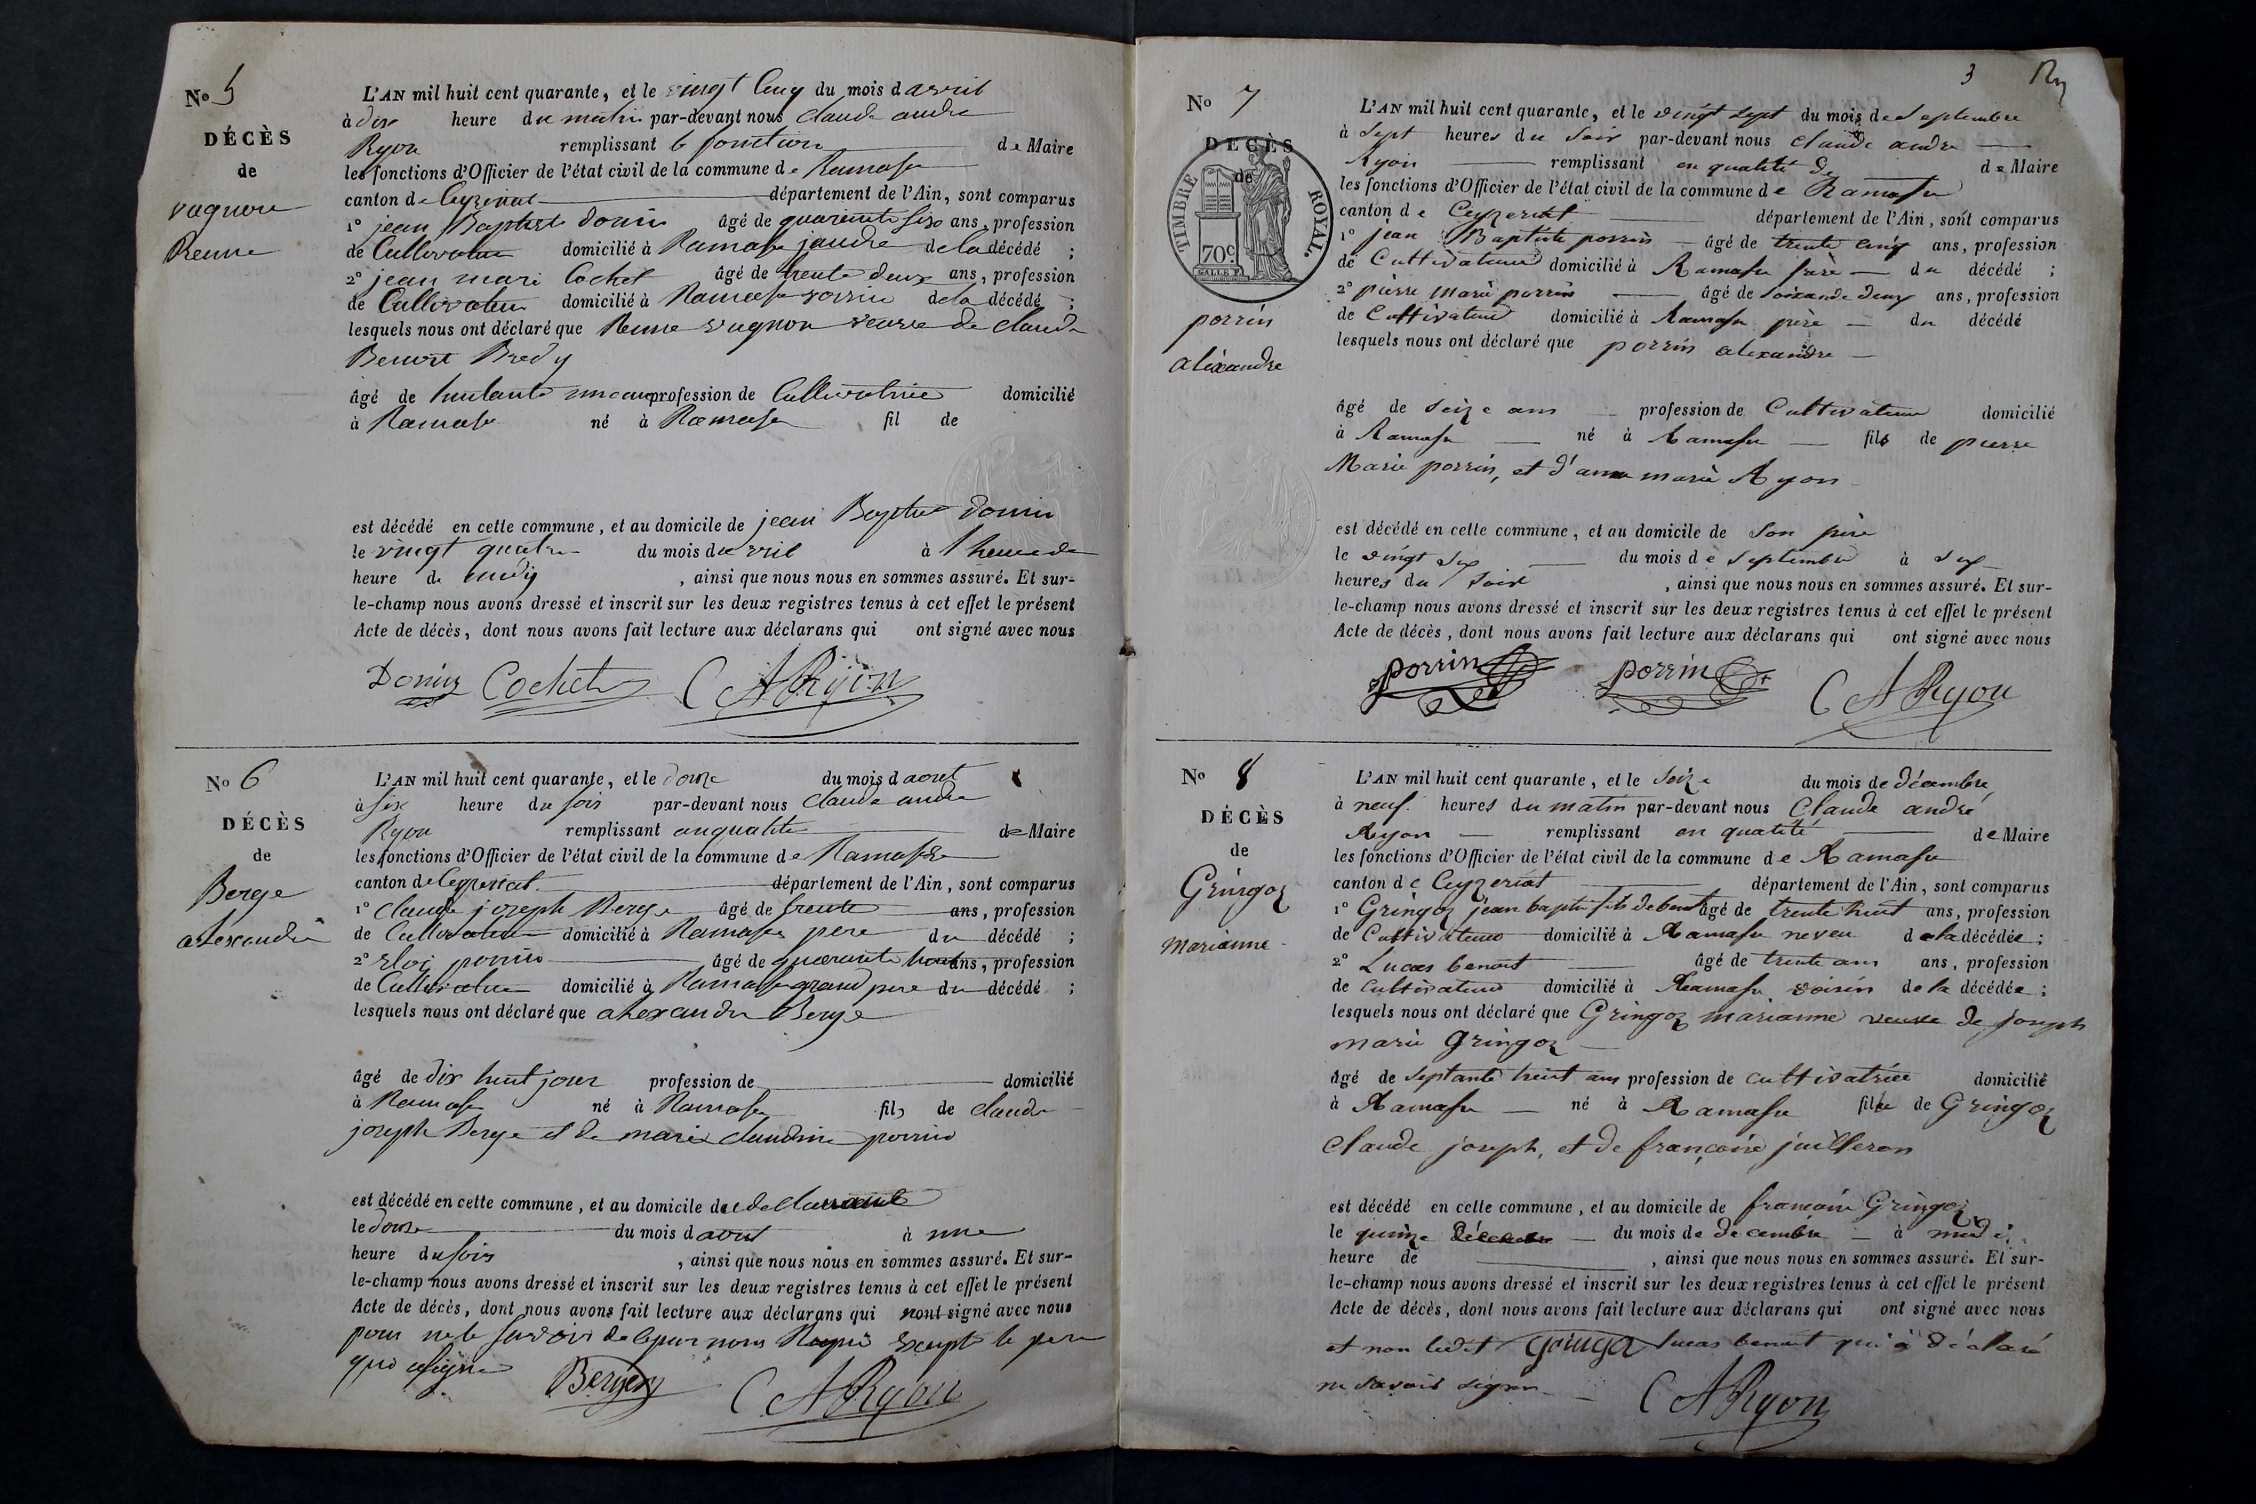 No 5
DÉCÈS
de
vugnon
Reine
L'AN mil huit cent quarante, et le vingt cinq du mois d avril
à dix heure du matin par-devant nous claude andre
Ryon remplissant le fonction de Maire
les fonctions d'Officier de l'état civil de la commune de Ramasse
canton de Ceyzeriat département de l'Ain, sont comparus
1° jean Baptiste Donin âgé de quarante six ans, profession
de Cultivateur domicilié à Ramasse jendre de la décédé ;
2° jean mari Cochet âgé de trente deux ans, profession
de Cultivateur domicilié à Ramasse voisin de la décédé ;
lesquels nous ont déclaré que Reine vugnon veuve de claude
Benoit Bredy
âgé de huitante un an profession de Cultivatrice domicilié
à Ramasse né à Ramasse fil de
est décédé en cette commune, et au domicile de jean Baptiste Donin
le vingt quatre du mois d avril à 1 heure de
heure de midy , ainsi que nous nous en sommes assuré. Et sur-
le-champ nous avons dressé et inscrit sur les deux registres tenus à cet effet le présent
Acte de décès, dont nous avons fait lecture aux déclarans qui ont signé avec nous
Donin Cochet C A Ryon
No 6
DÉCÈS
de
Berge
alexandre
L'AN mil huit cent quarante, et le douze du mois d aout
à six heure du soir par-devant nous claude andre
Ryon remplissant enqualité de Maire
les fonctions d'Officier de l'état civil de la commune de Ramasse
canton de Ceyzeriat département de l'Ain, sont comparus
1° claude joseph Berge âgé de trente ans, profession
de Cultivateur domicilié à Ramasse pere du décédé ;
2° eloi porrin âgé de quarante huit ans, profession
de Cultivateur domicilié à Ramasse grand pere du décédé ;
lesquels nous ont déclaré que alexandre Berge
âgé de dix huit jour profession de domicilié
à Ramasse né à Ramasse fils de claude
joseph Berge et de marie claudine porrin
est décédé en cette commune, et au domicile de
le douze du mois d aout à une
heure du soir , ainsi que nous nous en sommes assuré. Et sur-
le-champ nous avons dressé et inscrit sur les deux registres tenus à cet effet le présent
Acte de décès, dont nous avons fait lecture aux déclarans qui nont signé avec nous
pour ne le savoir de ce par nous Requis excepte le pere
qui a signé Berger C A Ryon
3 Ry
No 7
DÉCÈS
de
TIMBRE ROYAL.
70c
porrin
aléxandre
L'AN mil huit cent quarante, et le vingt sept du mois de septembre
à sept heures du soir par-devant nous claude andre
Ryon remplissant en qualité de de Maire
les fonctions d'Officier de l'état civil de la commune de Ramasse
canton de Ceyzeriat département de l'Ain, sont comparus
1° jean Baptiste porrin âgé de trente cinq ans, profession
de Cultivateur domicilié à Ramasse frère du décédé ;
2° pierre marie porrin âgé de soixande deux ans, profession
de Cultivateur domicilié à Ramasse père du décédé
lesquels nous ont déclaré que porrin alexandre
âgé de seize ans profession de Cultivateur domicilié
à Ramasse né à Ramasse fils de pierre
Marie porrin, et d'anne marie Ryon
est décédé en cette commune, et au domicile de son père
le vingt six du mois de septembre à six
heures du soir , ainsi que nous nous en sommes assuré. Et sur-
le-champ nous avons dressé et inscrit sur les deux registres tenus à cet effet le présent
Acte de décès, dont nous avons fait lecture aux déclarans qui ont signé avec nous
porrin porrin C A Ryon
No 8
DÉCÈS
de
Gringoz
marianne
L'AN mil huit cent quarante, et le seize du mois de décembre
à neuf heures du matin par-devant nous Claude andré
Ryon remplissant en qualité de Maire
les fonctions d'Officier de l'état civil de la commune de Ramasse
canton de Ceyzeriat département de l'Ain, sont comparus
1° Gringoz jean baptiste fils de benoit âgé de trente huit ans, profession
de Cultivateur domicilié à Ramasse neveu de la décédée ;
2° Lucas benoit âgé de trente ans ans, profession
de cultivateur domicilié à Ramasse voisin de la décédée ;
lesquels nous ont déclaré que Gringoz marianne veuve de joseph
marie gringoz
âgé de septante huit ans profession de cultivatrice domicilié
à Ramasse né à Ramasse fille de Gringoz
Claude joseph, et de françoise juilleron
est décédé en cette commune, et au domicile de francoise Gringoz
le quinze du mois de decembre à midi
heure de , ainsi que nous nous en sommes assuré. Et sur-
le-champ nous avons dressé et inscrit sur les deux registres tenus à cet effet le présent
Acte de décès, dont nous avons fait lecture aux déclarans qui ont signé avec nous
et non ledit Gringoz lucas benoit qui a déclaré
ne savoir signer C A Ryon